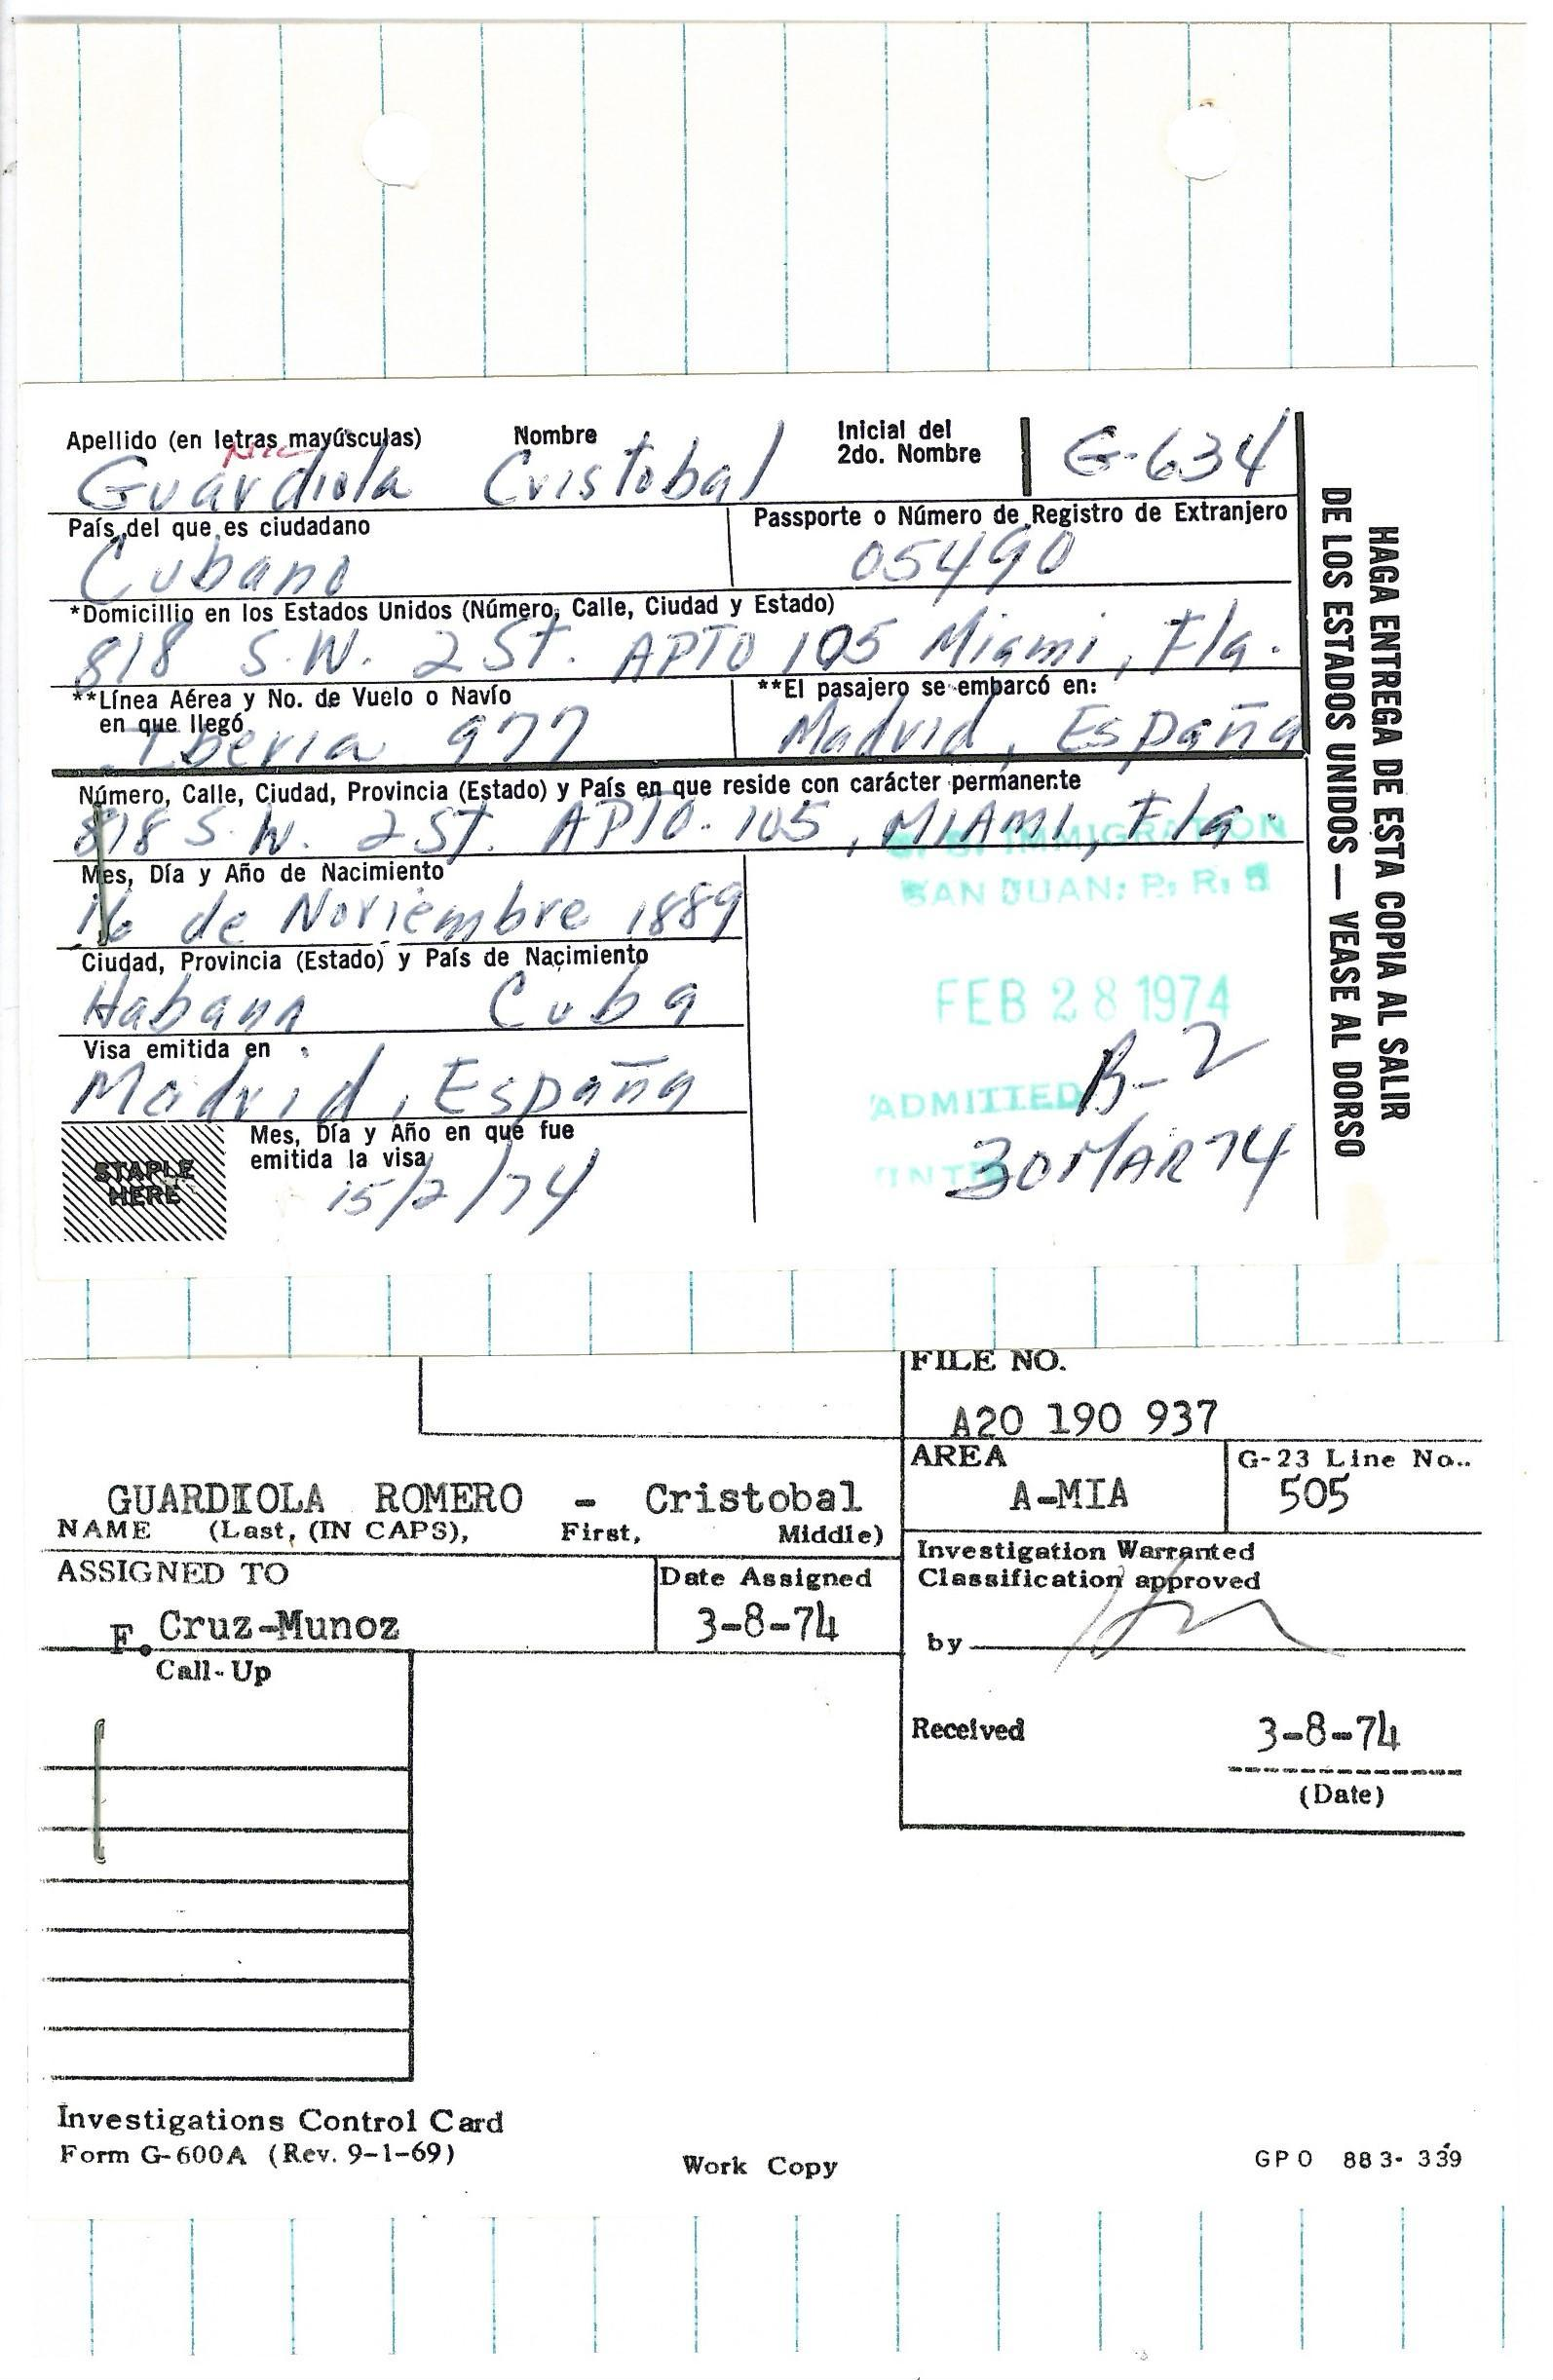 Apellido (en letras mayúsculas) Nombre Inicial del 2do. Nombre
Guardiola Cristobal G-634
País del que es ciudadano Passporte o Número de Registro de Extranjero
Cubano 05490
*Domicillio en los Estados Unidos (Número, Calle, Ciudad y Estado)
818 S.W. 2 St. APTO 105 Miami, Fla.
**Línea Aérea y No. de Vuelo o Navío en que llegó **El pasajero se embarcó en:
Iberia 977 Madrid, España
Número, Calle, Ciudad, Provincia (Estado) y País en que reside con carácter permanente
818 S.W. 2 St. APTO. 105, MIAMI, Fla.
U. S. IMMIGRATION
SAN JUAN, P. R. 5
Mes, Día y Año de Nacimiento
16 de Noviembre 1889
Ciudad, Provincia (Estado) y País de Nacimiento
Habana Cuba
FEB 28 1974
Visa emitida en
Madrid, España
ADMITTED B-2
30 MAR 74
Mes, Día y Año en que fue
emitida la visa
15/2/74
STAPLE
HERE
HAGA ENTREGA DE ESTA COPIA AL SALIR
DE LOS ESTADOS UNIDOS — VEASE AL DORSO
FILE NO.
A20 190 937
AREA G-23 Line No..
A-MIA 505
GUARDIOLA ROMERO - Cristobal
NAME (Last, (IN CAPS), First, Middle)
ASSIGNED TO Date Assigned
F. Cruz-Munoz 3-8-74
Investigation Warranted
Classification approved
by
Call-Up
Received 3-8-74
(Date)
Investigations Control Card
Form G-600A (Rev. 9-1-69)
Work Copy
GPO 883-339